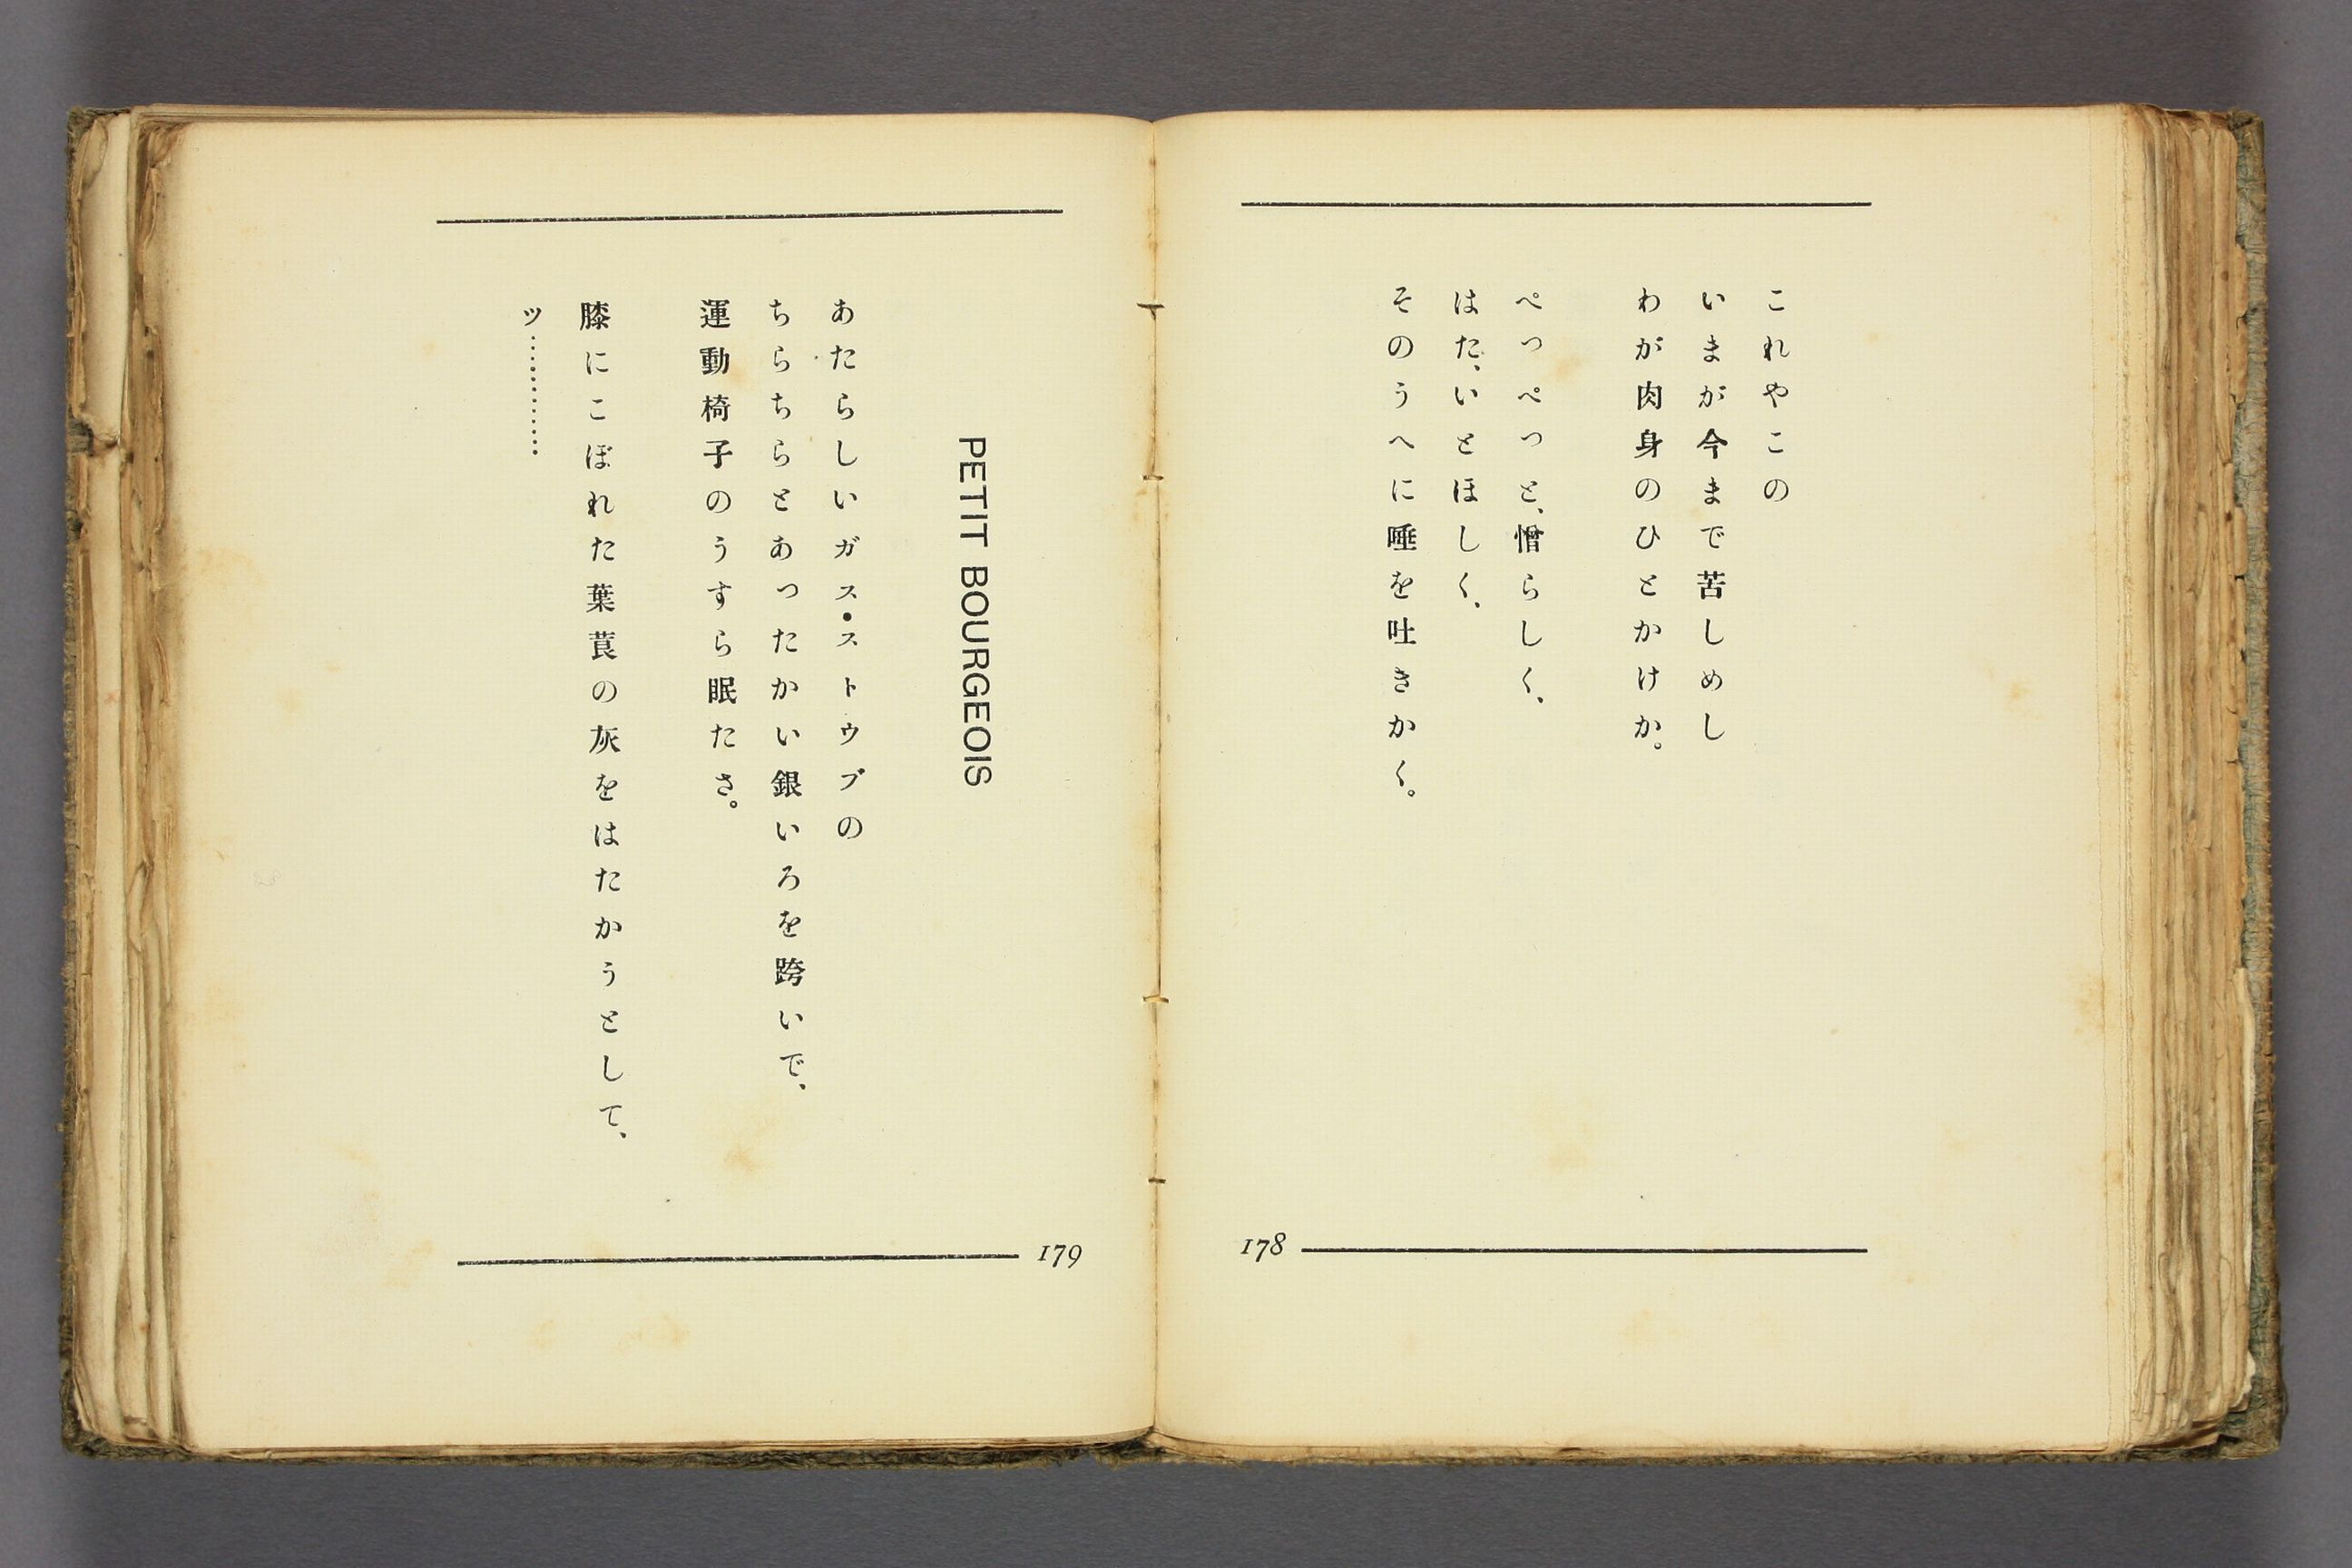 これやこの
いまが今まで苦しめし
わが肉身のひとかけか。
ぺつぺつと、憎らしく、
はた、いとほしく、
そのうへに唾を吐きかく。
178
PETIT BOURGEOIS
あたらしいガス・ストウブの
ちらちらとあつたかい銀いろを跨いで、
運動椅子のうすら眠たさ。
膝にこぼれた葉莨の灰をはたかうとして、
ッ…………
179